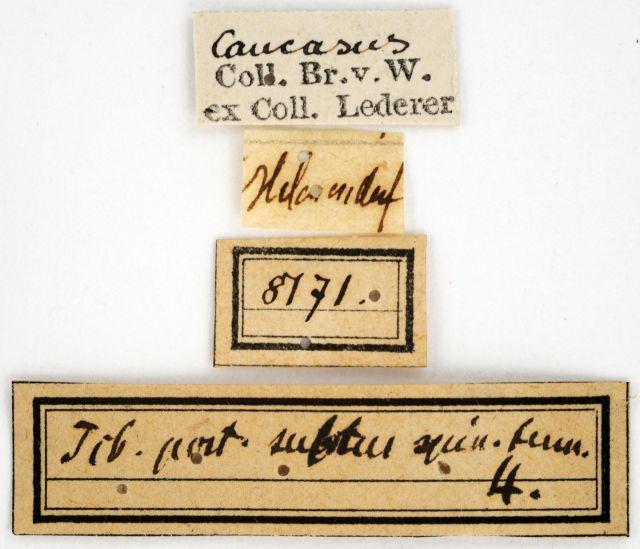 Caucasus
Coll. Br. v. W.
ex Coll. Lederer
Helenendorf
8171.
Tib. post. subtus spin. term.
4.